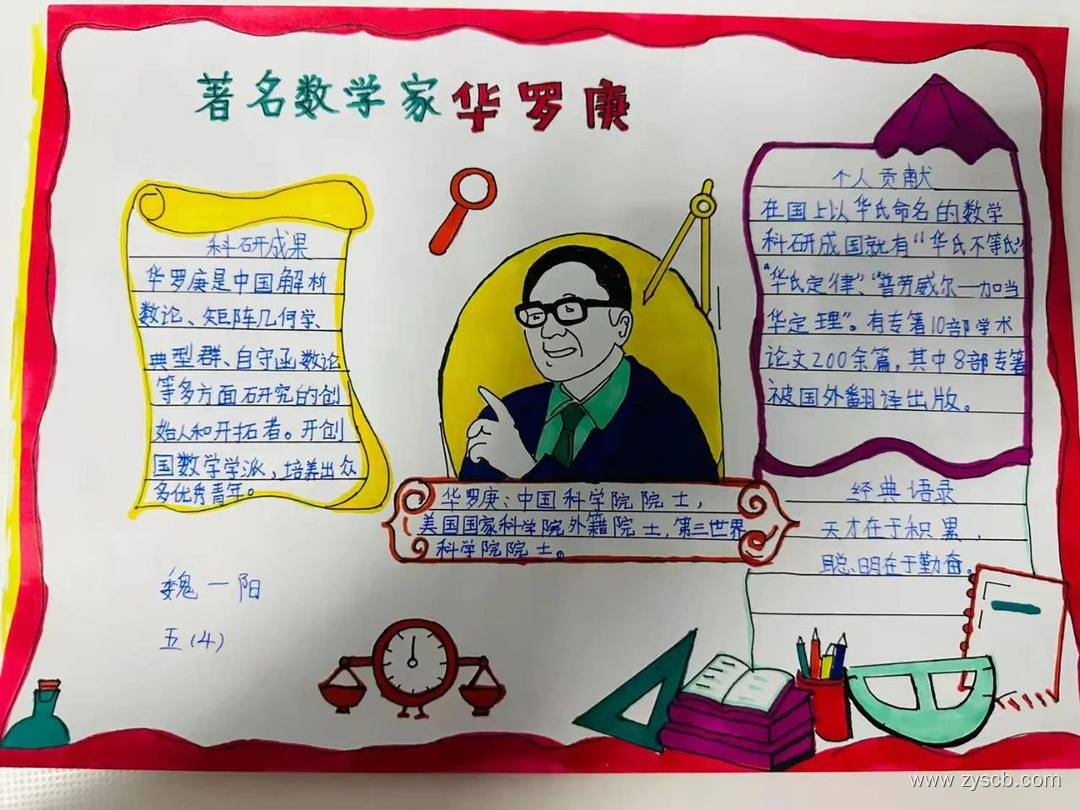 著名数学家华罗庚
科研成果
华罗庚是中国解析
数论、矩阵几何学、
典型群、自守函数论
等多方面研究的创
始人和开拓者。开创
国数学学派,培养出众
多优秀青年。
华罗庚:中国科学院院士,
美国国家科学院外籍院士,第三世界
科学院院士。
个人贡献
在国上以华氏命名的数学
科研成国就有"华氏不等式"
"华氏定律"、"普劳威尔一加当
华定理"。有专著10部学术
论文200余篇,其中8部专著
被国外翻译出版。
经典语录
天才在于积累,
聪明在于勤奋。
魏一阳
五(4)
www.zyscb.com